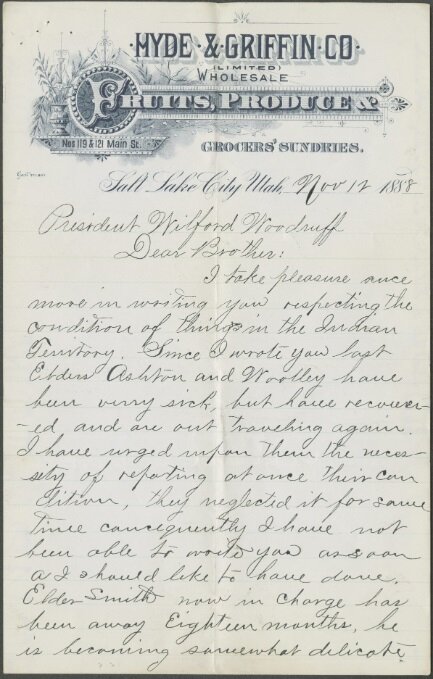 HYDE & GRIFFIN CO
(LIMITED)
WHOLESALE
FRUITS, PRODUCE &
Nos 119 & 121 Main St.
GROCERS' SUNDRIES.
Salt Lake City Utah, Nov 12 1888
President Wilford Woodruff
Dear Brother:
I take pleasure once
more in writing you respecting the
condition of things in the Indian
Territory. Since I wrote you last
Elders Ashton and Woolley have
been very sick, but have recover-
-ed and are out traveling again.
I have urged upon them the neces-
sity of repoting at once their con
dition, they neglected it for some
time concequently I have not
been able to write you as soon
as I should like to have done.
Elder Smith now in charge has
been away Eighteen months, he
is becoming somewhat delicate